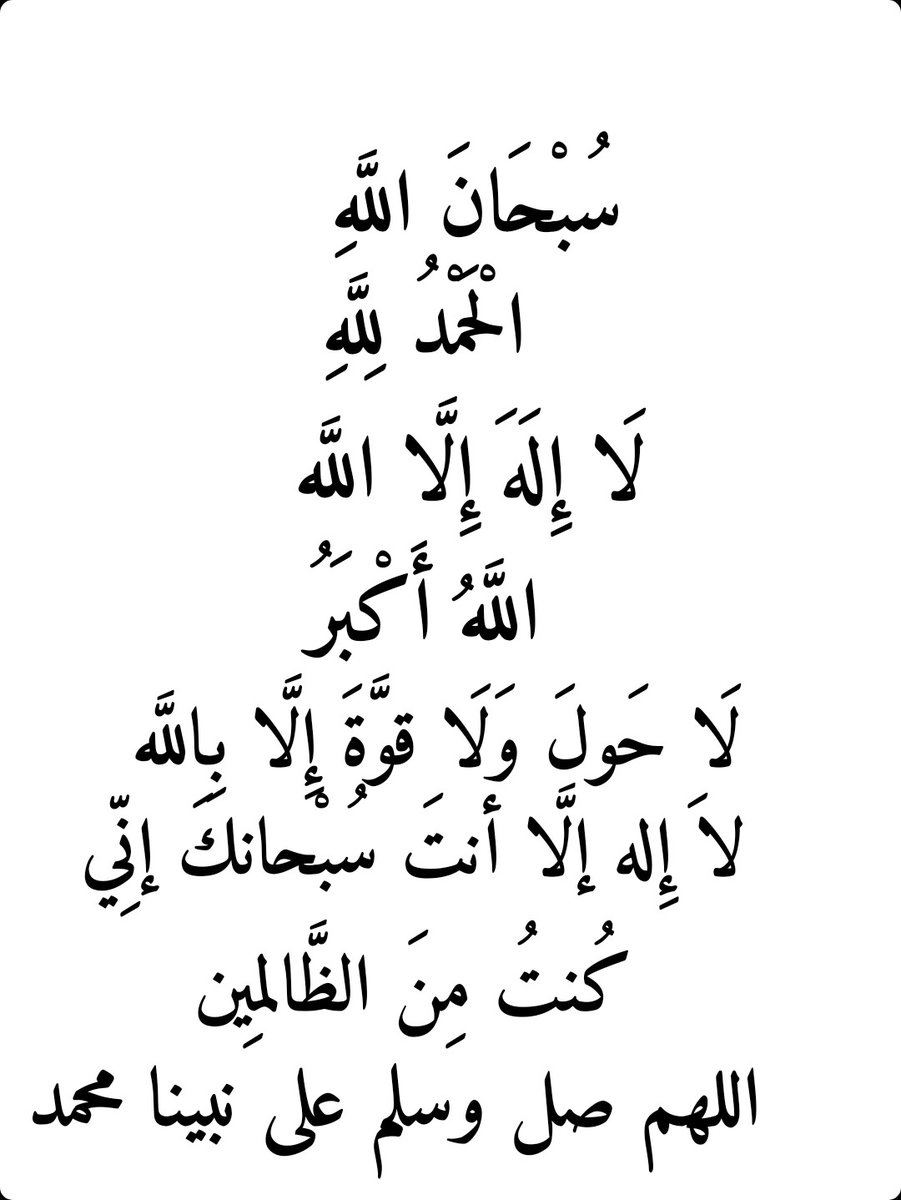 سُبْحَانَ اللَّهِ
الْحَمْدُ لِلَّهِ
لَا إِلَهَ إِلَّا اللَّه
اللَّهُ أَكْبَرُ
لَا حَولَ وَلَا قوَّةَ إِلَّا بِاللَّه
لاَ إِله إلَّا أنتَ سُبْحانكَ إنِّي
كُنتُ مِنَ الظَّالمِين
اللهم صل وسلم على نبينا محمد